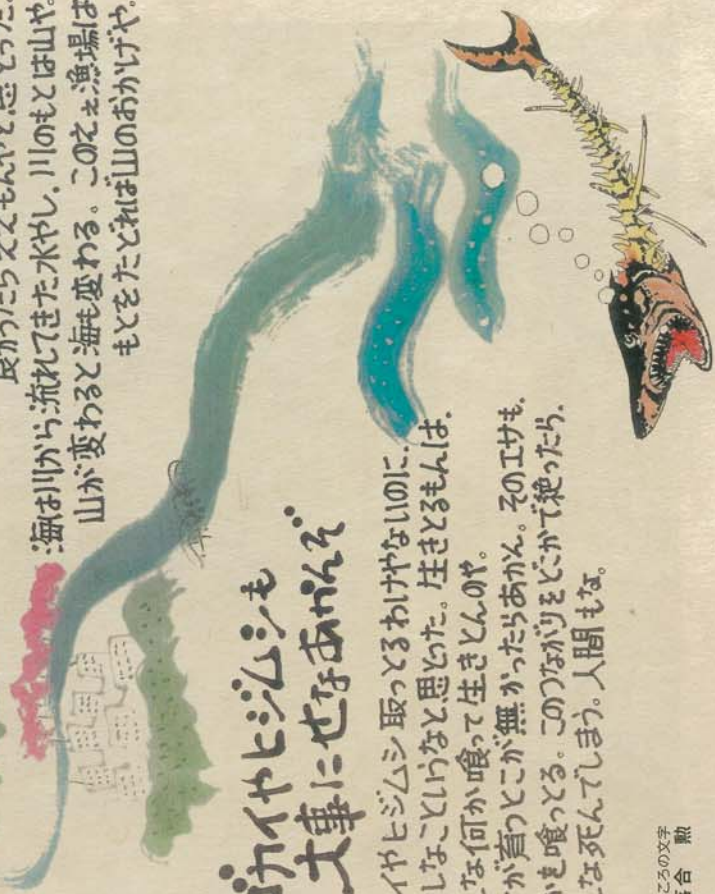 良かったらええもんやと思とった.
海は川から流れてきた水やし、川のもとは山や。
山が変わると海も変わる。このええ漁場は
もとをたどれば山のおかげや。
ゴカイやヒジムシも
大事にせなあかんぞ
イやヒジムシ取っとるわけやないのに.
しなこというなと思とった。生きとるもんは.
な何か喰って生きとんのや。
が育つとこが無かったらあかん。そのエサも.
かを喰っとる。このつながりをどこかで絶ったら.
な死んでしまう。人間もな。
ころの文字
落合 勲